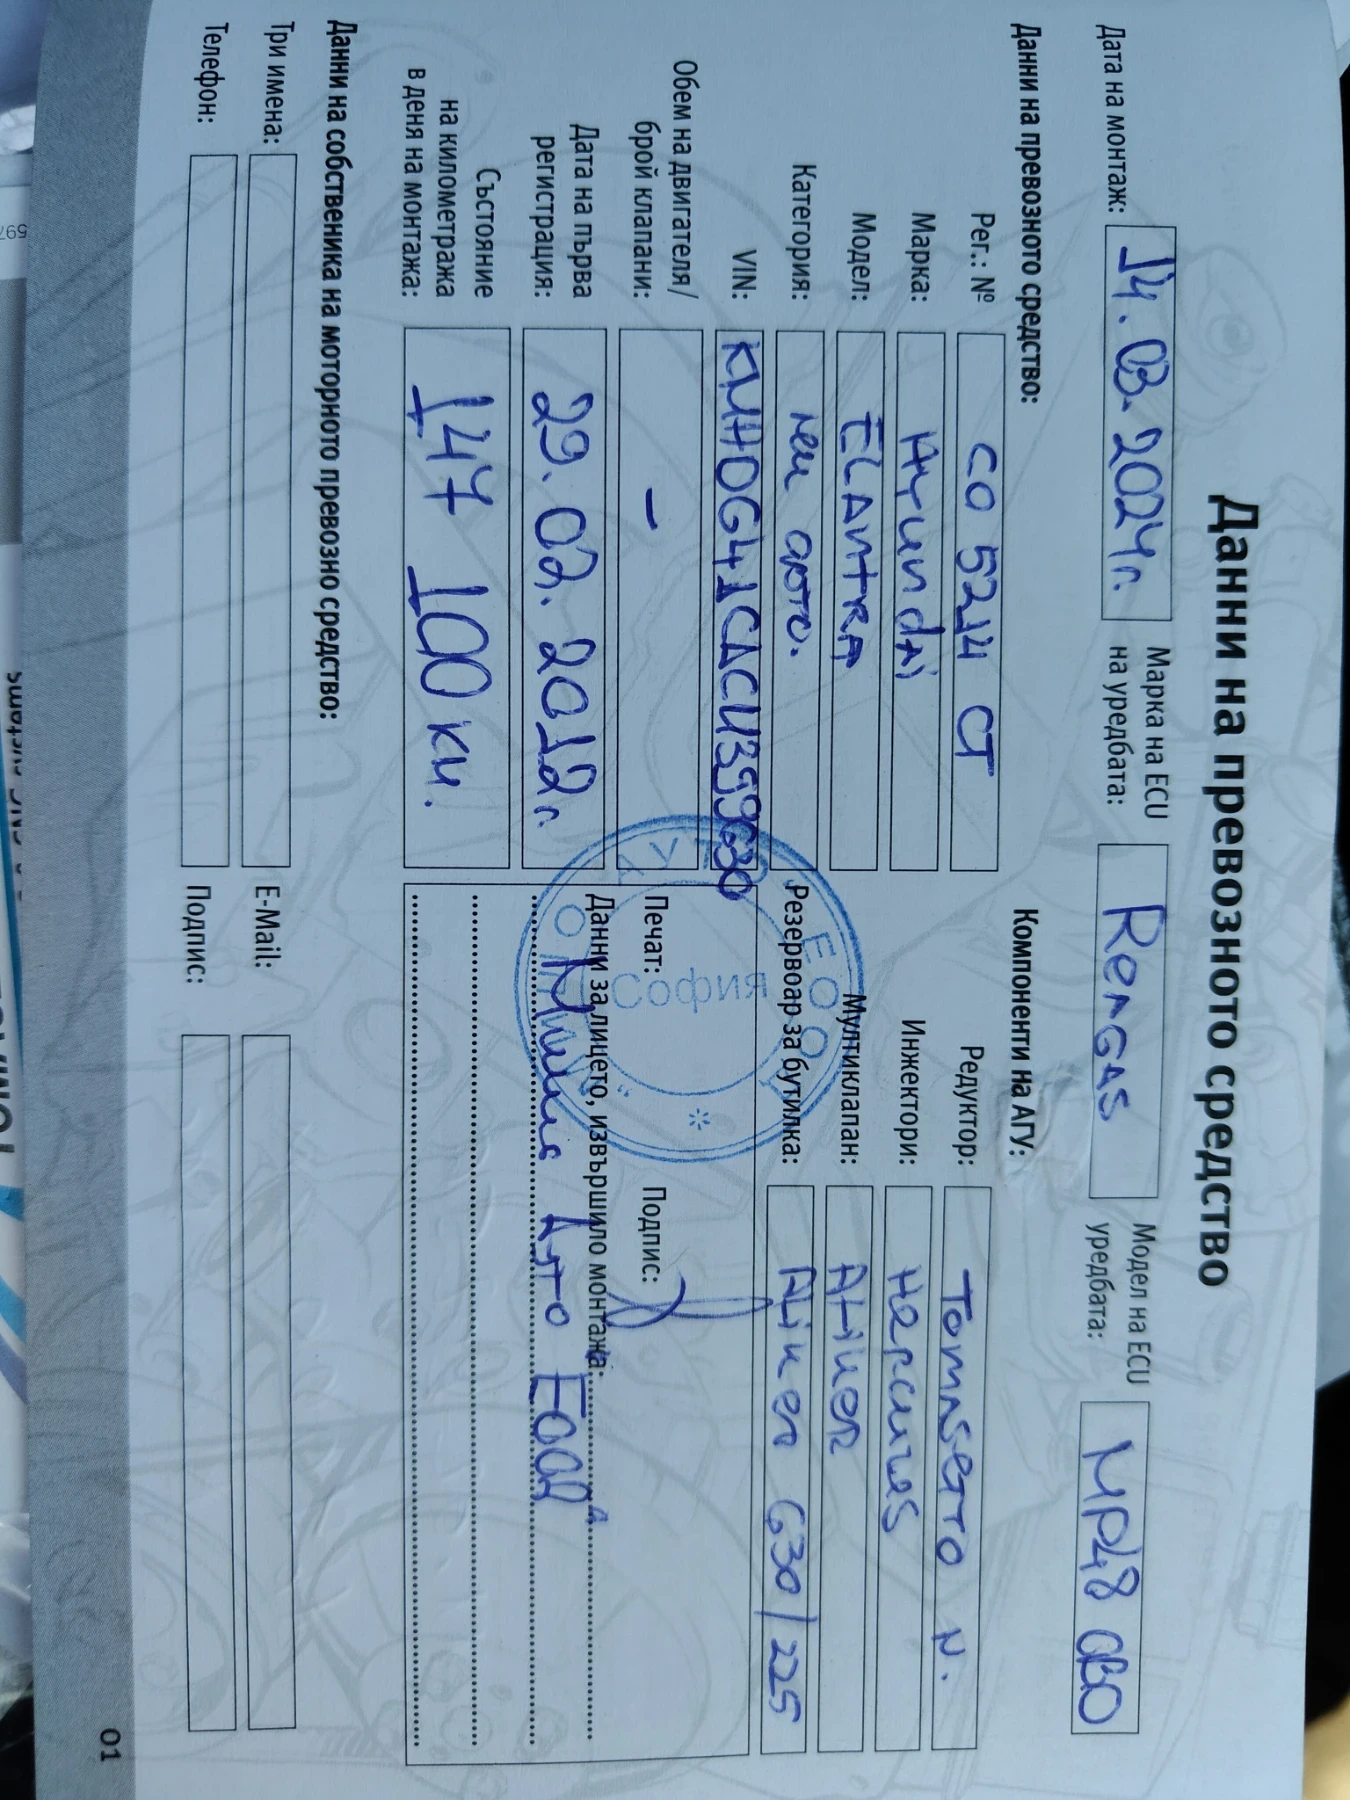 Данни на превозното средство
Дата на монтаж: 14.03.2024г. Марка на ECU на уредбата: RemGAS Модел на ECU уредбата: MP48 OBD
Данни на превозното средство:
Рег.: № CO 5214 CT
Марка: Hyundai
Модел: ELANtRA
Категория: лек авто.
VIN:
Обем на двигателя/
брой клапани: –
Дата на първа
регистрация: 29.02.2012г.
Състояние
на километража
в деня на монтажа: 147 100 км.
Компоненти на АГУ:
Редуктор: TOMASETTO N.
Инжектори: Hercules
Мултиклапан: AtikeR
Резервоар за бутилка: Atiker 630/225
Печат: Подпис:
ЕООД
София
Данни за лицето, извършило монтажа:
Авто ЕООД
Данни на собственика на моторното превозно средство:
Три имена: E-Mail:
Телефон: Подпис:
01
597